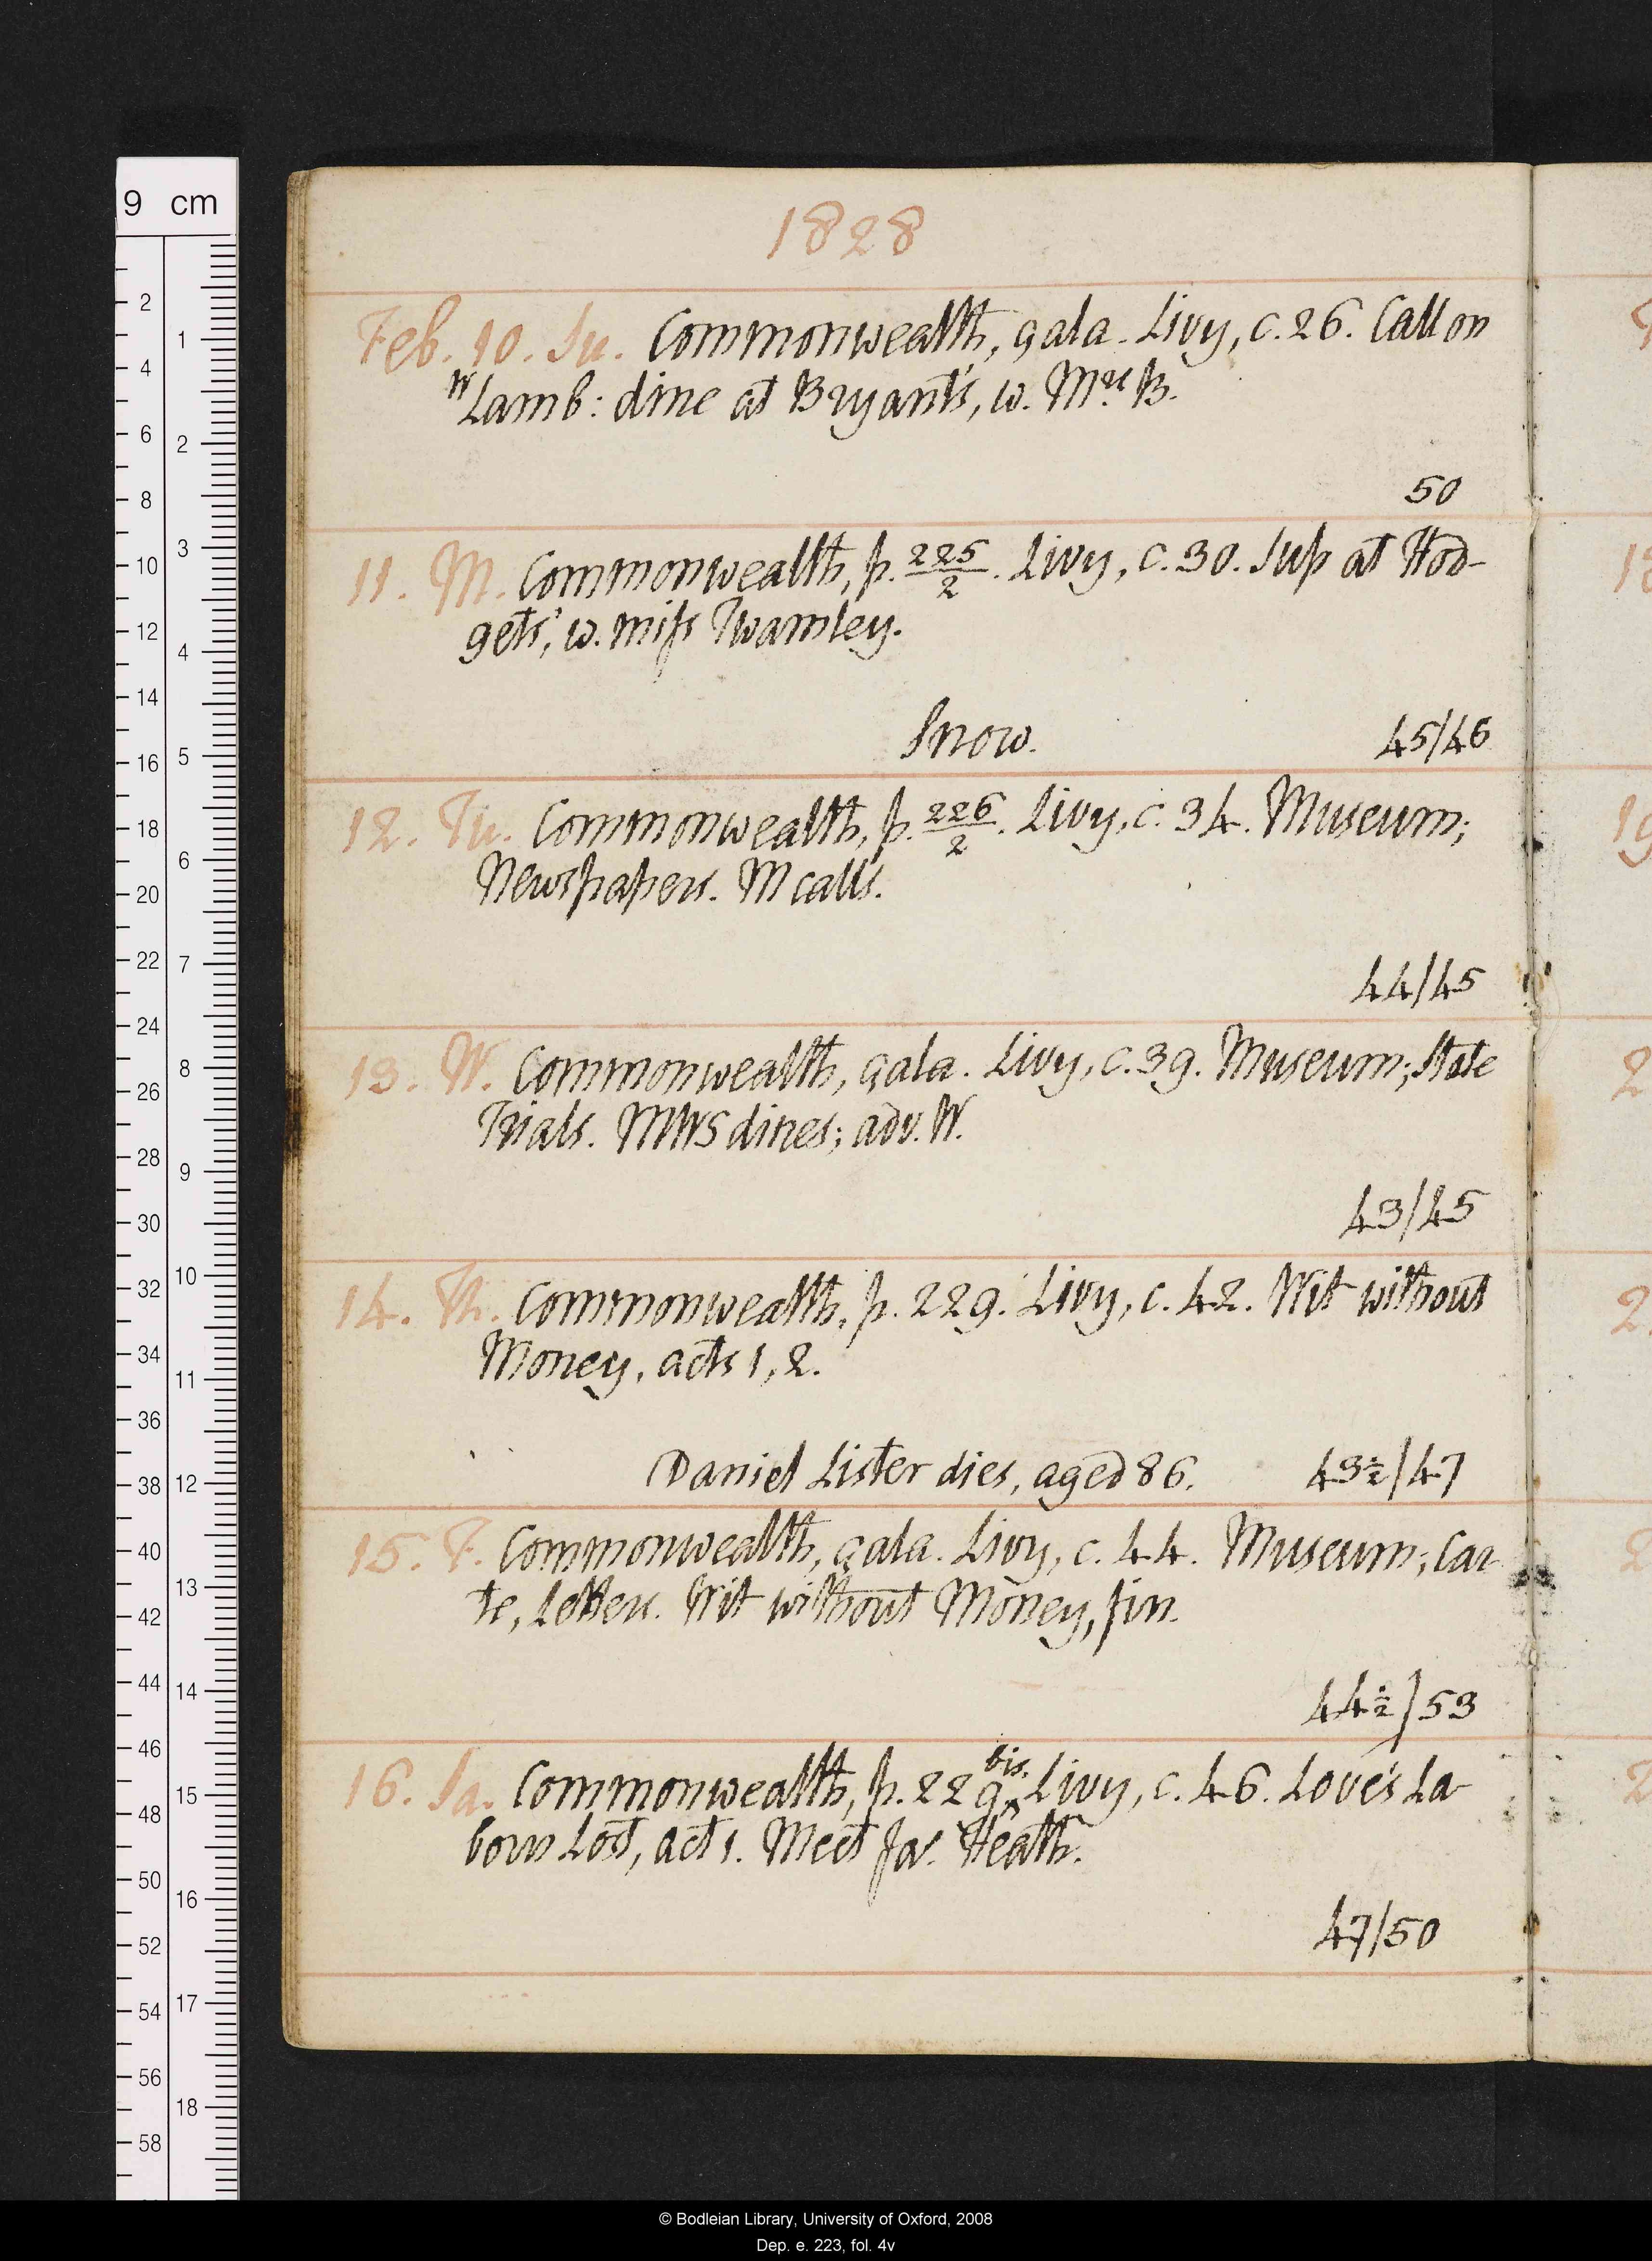 1828
Feb. 10. Su. Commonwealth, gala. Livy, c. 26. Call on
W Lamb: dine at Bryant's, w. Mrs B.
50
11. M. Commonwealth, p. 225/2. Livy, c. 30. Sup at Hod-
gets', w. miss Twamley.
Snow. 45/46
12. Tu. Commonwealth, p. 226/2. Livy, c. 34. Museum;
Newspapers. M calls.
44/45
13. W. Commonwealth, gala. Livy, c. 39. Museum; State
Trials. MWS dines; adv. W.
43/45
14. Th. Commonwealth, p. 229. Livy, c. 42. Wit without
Money, acts 1, 2.
Daniel Lister dies, aged 86. 43½/47
15. F. Commonwealth, gala. Livy, c. 44. Museum; Car-
te, Letters. Wit without Money, fin.
44½/53
16. Sa. Commonwealth, p. 229 bis. Livy, c. 46. Love's La-
bours Lost, act 1. Meet Jas. Heath.
47/50
9 cm
2
1
4
6
2
8
10
3
12
4
14
16
5
18
6
20
22
7
24
8
26
28
9
30
32
10
34
11
36
38
12
40
13
42
44
14
46
15
48
50
16
52
54
17
56
18
58
© Bodleian Library, University of Oxford, 2008
Dep. e. 223, fol. 4v